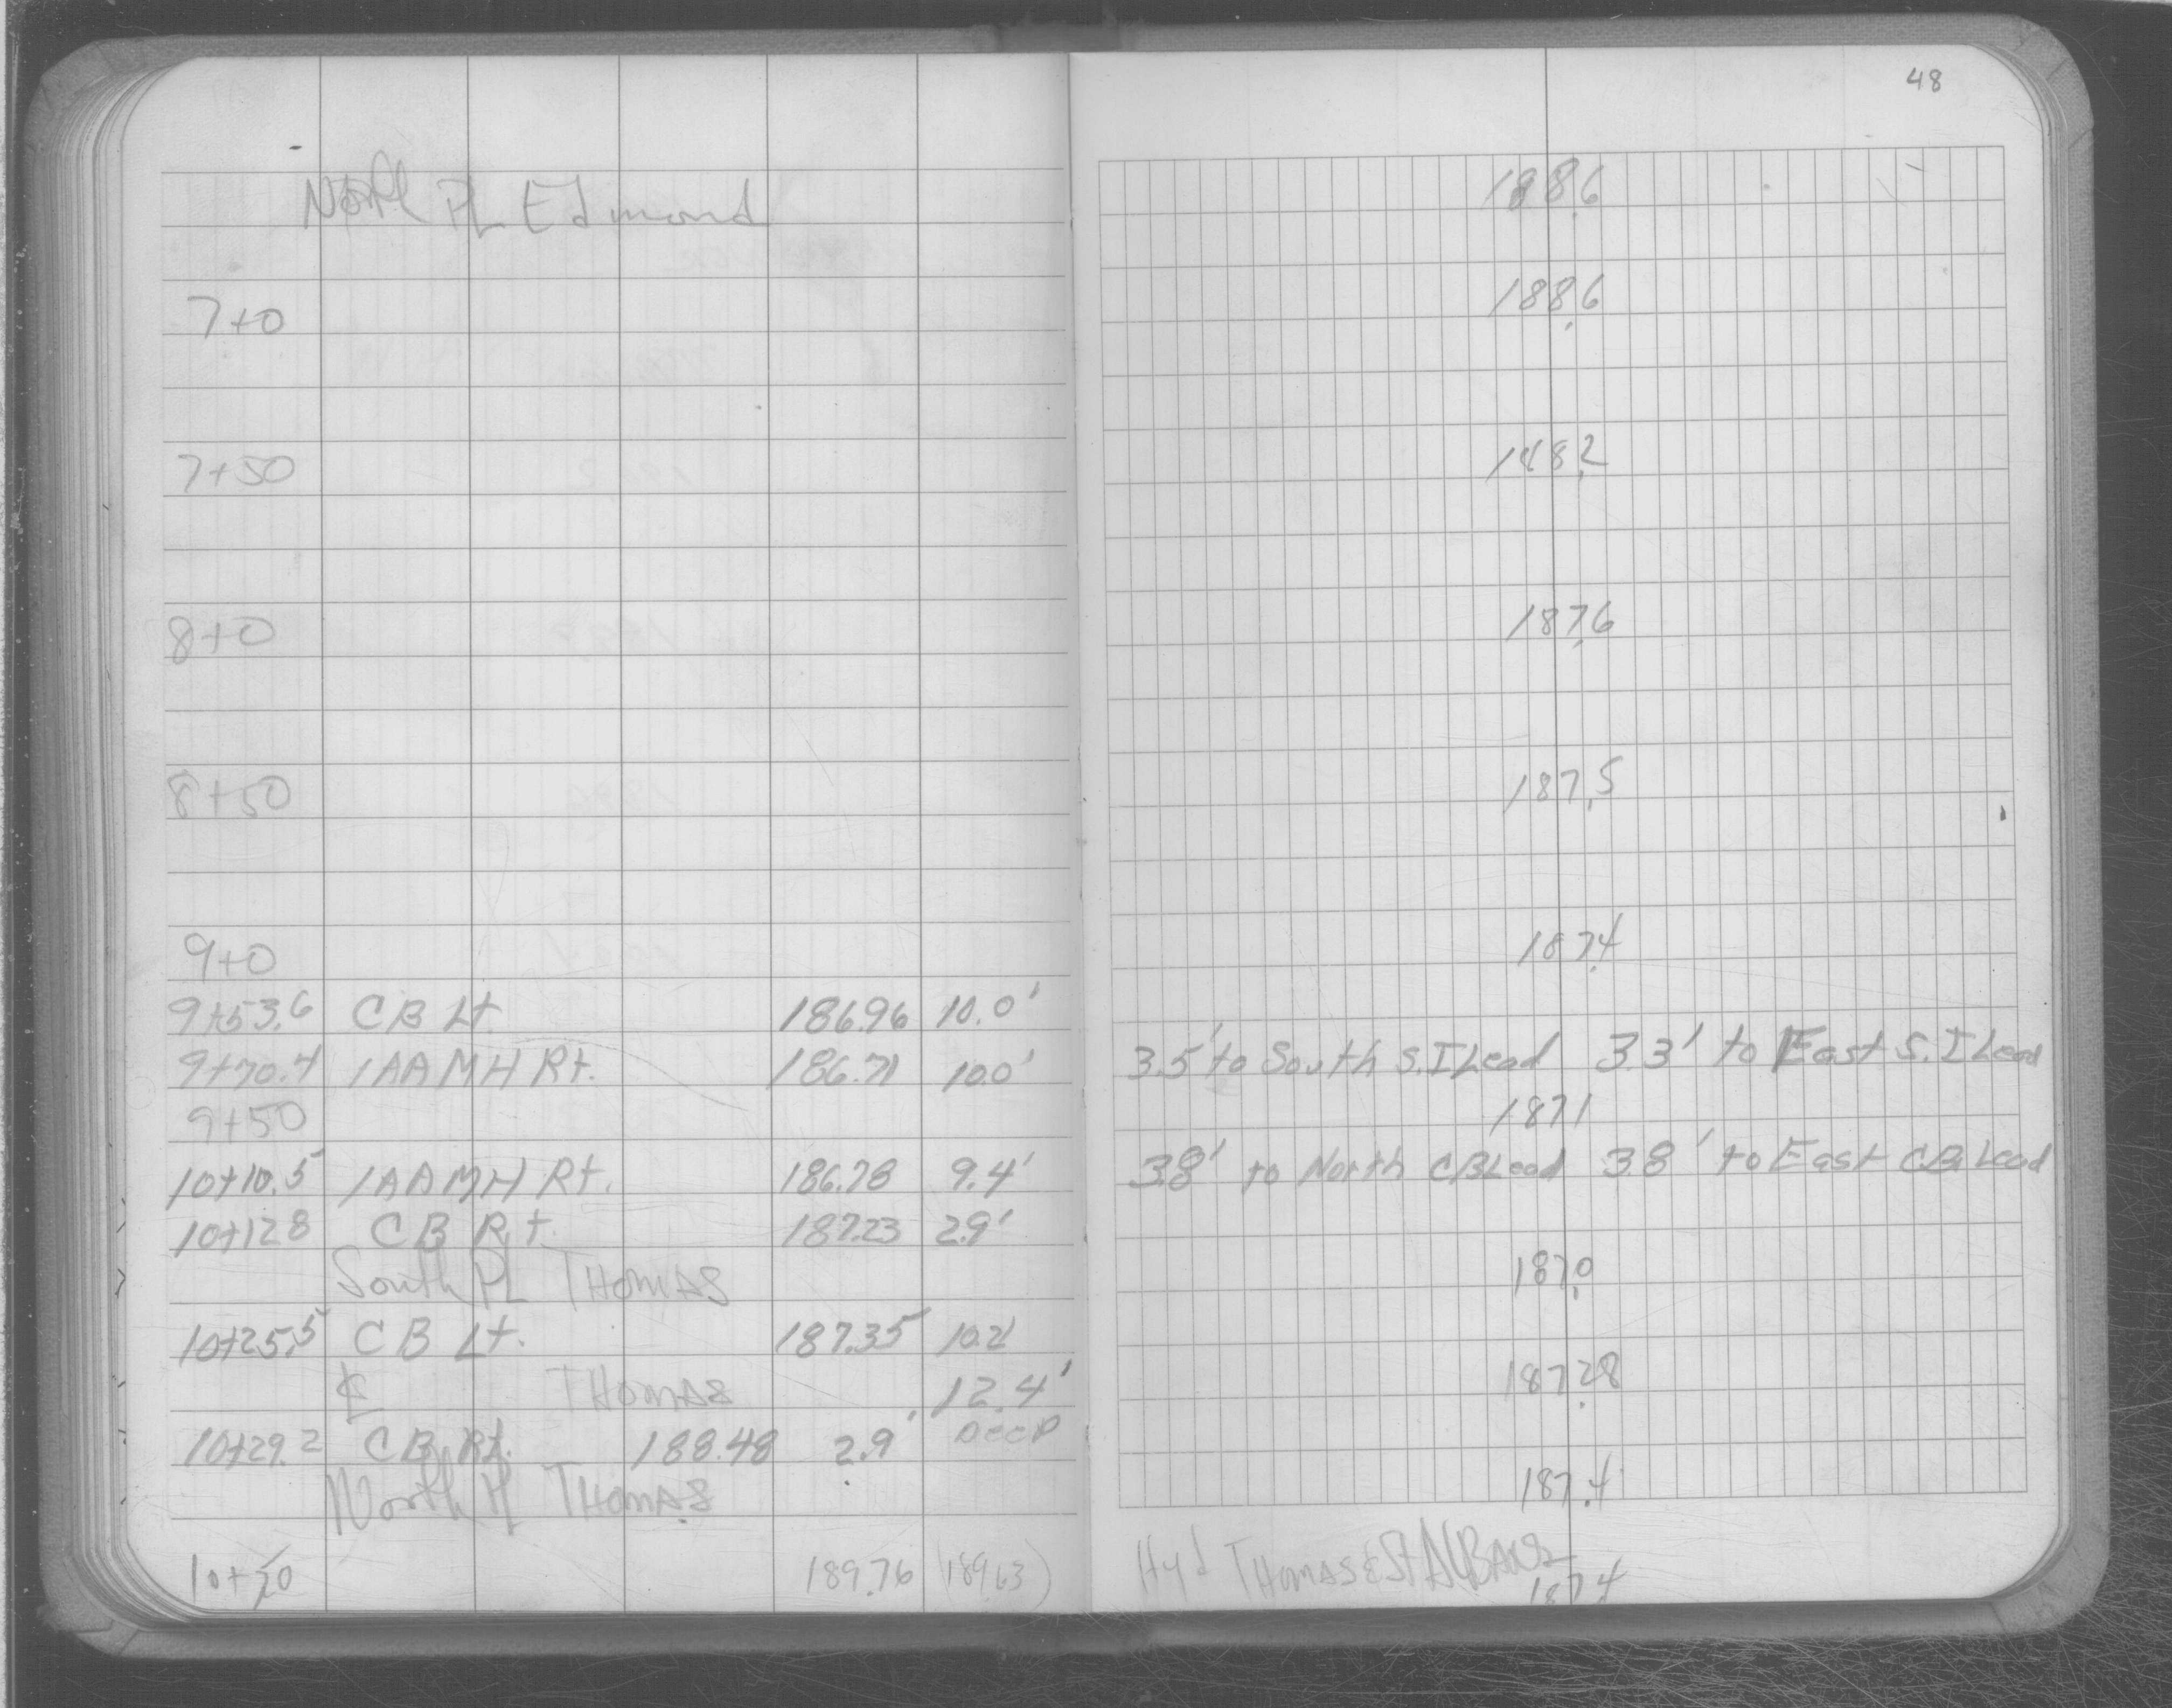 48
North PL Edmond 188.6
7+0 188.6
7+50 188.2
8+0 187.6
8+50 187.5
9+0 187.4
9+53.6 CB Lt. 186.96 10.0'
9+70.4 1AAMH Rt. 186.71 10.0' 3.5' to South S.I Lead 3.3' to East S.I Lead
9+50 187.1
10+10.5 1AAMH Rt. 186.78 9.4' 3.8' to North CB Lead 3.8' to East CB Lead
10+12.8 CB Rt. 187.23 2.9'
South PL THOMAS 187.0
10+25.5 CB Lt. 187.35 10.2'
℄ THOMAS 12.4' 187.28
10+29.2 CB Rt. 188.48 2.9' Deep
North PL THOMAS 187.4
Hyd THOMAS & St ALBANS
10+50 189.76 (189.63) 187.4